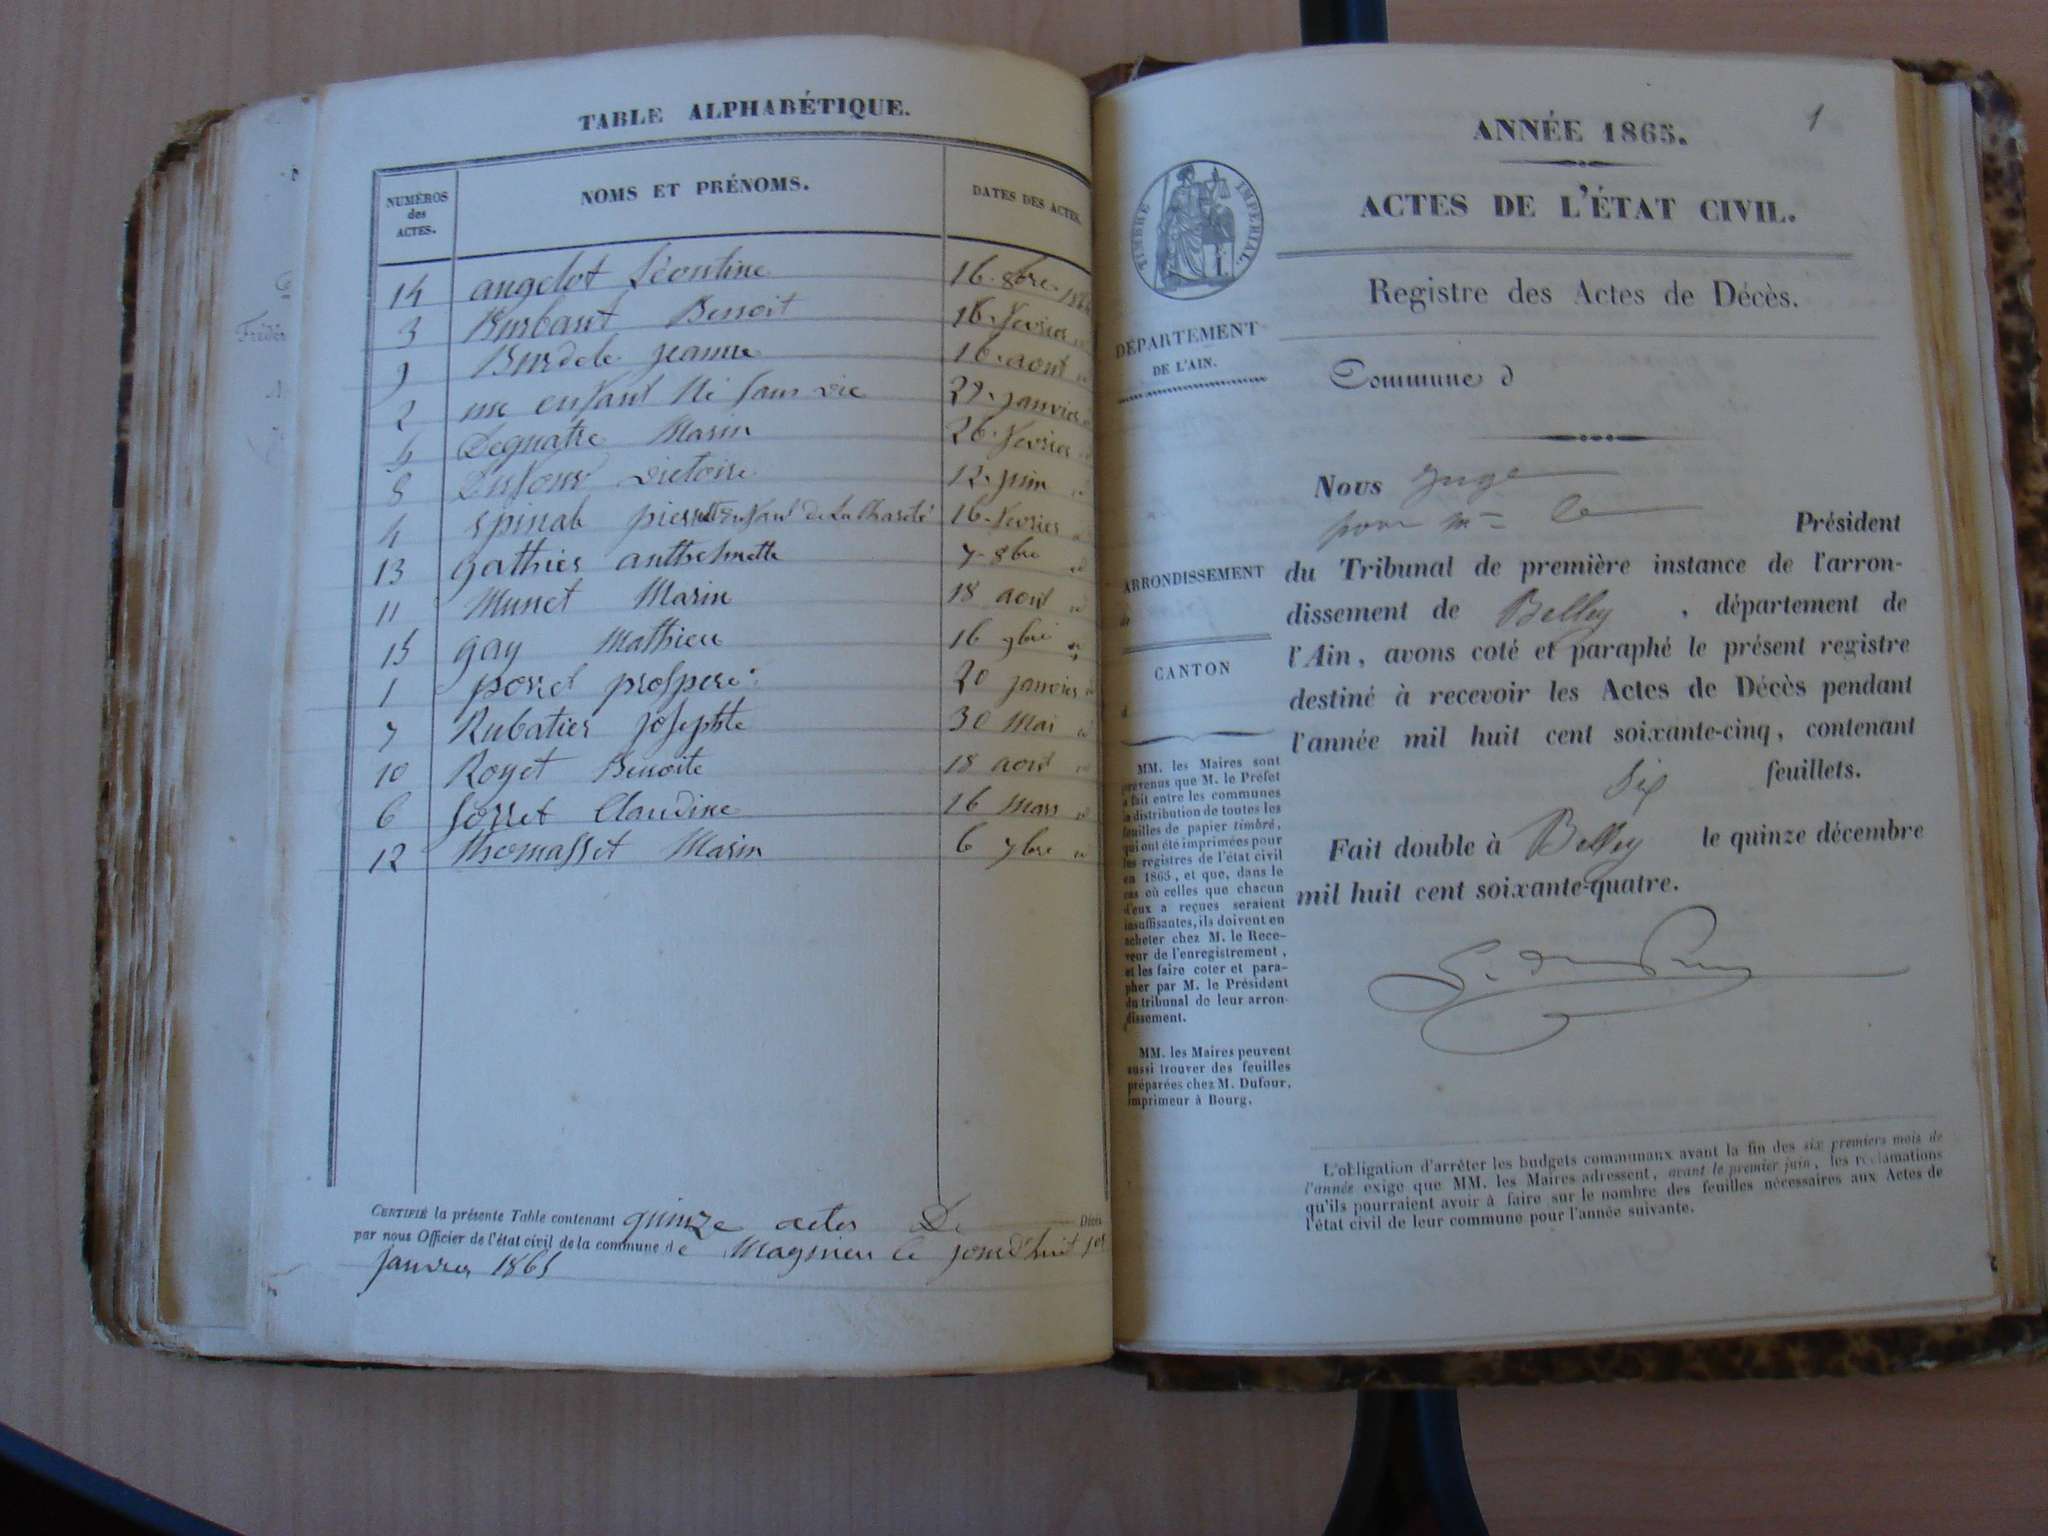 TABLE ALPHABÉTIQUE.
NUMÉROS
des
ACTES.
NOMS ET PRÉNOMS.
DATES DES ACTES.
14 angelot Léontine 16. 8bre. 1864
3 Burbant Benoit 16. fevrier id
9 Burdele jeanne 16. aout id
2 une enfant Né sans vie 29. janvier id
Dequatre Marin 26. fevrier id
8 Dufour victoire 12. juin id
4 Spinab pierre enfant de La Charité 16. fevrier id
13 gathier anthelmette 7. 8bre id
11 Munet Marin 18 aout id
15 gay Mathieu 16 9bre id
1 porret prospere 20 janvier id
7 Rubatier josephte 30 Mai id
10 Royet Benoite 18 aout id
6 Sorret Claudine 16 Mars id
12 thomasset Marin 6 7bre id
CERTIFIÉ la présente Table contenant quinze actes De Décès
par nous Officier de l'état civil de la commune de Magnieu le jourd'huit 1er
janvier 1865
1
ANNÉE 1865.
ACTES DE L'ÉTAT CIVIL.
TIMBRE IMPÉRIAL
Registre des Actes de Décès.
DÉPARTEMENT
DE L'AIN.
Commune d
ARRONDISSEMENT
de
CANTON
d
Nous juge
pour Mr le Président
du Tribunal de première instance de l'arron-
dissement de Belley , département de
l'Ain, avons coté et paraphé le présent registre
destiné à recevoir les Actes de Décès pendant
l'année mil huit cent soixante-cinq, contenant
Six feuillets.
Fait double à Belley le quinze décembre
mil huit cent soixante-quatre.
MM. les Maires sont
prévenus que M. le Préfet
a fait entre les communes
la distribution de toutes les
feuilles de papier timbré,
qui ont été imprimées pour
les registres de l'état civil
en 1865, et que, dans le
cas où celles que chacun
d'eux a reçues seraient
insuffisantes, ils doivent en
acheter chez M. le Rece-
veur de l'enregistrement,
et les faire coter et para-
pher par M. le Président
du tribunal de leur arron-
dissement.
MM. les Maires peuvent
aussi trouver des feuilles
préparées chez M. Dufour,
imprimeur à Bourg.
L'obligation d'arrêter les budgets communaux avant la fin des six premiers mois de
l'année exige que MM. les Maires adressent, avant le premier juin, les réclamations
qu'ils pourraient avoir à faire sur le nombre des feuilles nécessaires aux Actes de
l'état civil de leur commune pour l'année suivante.